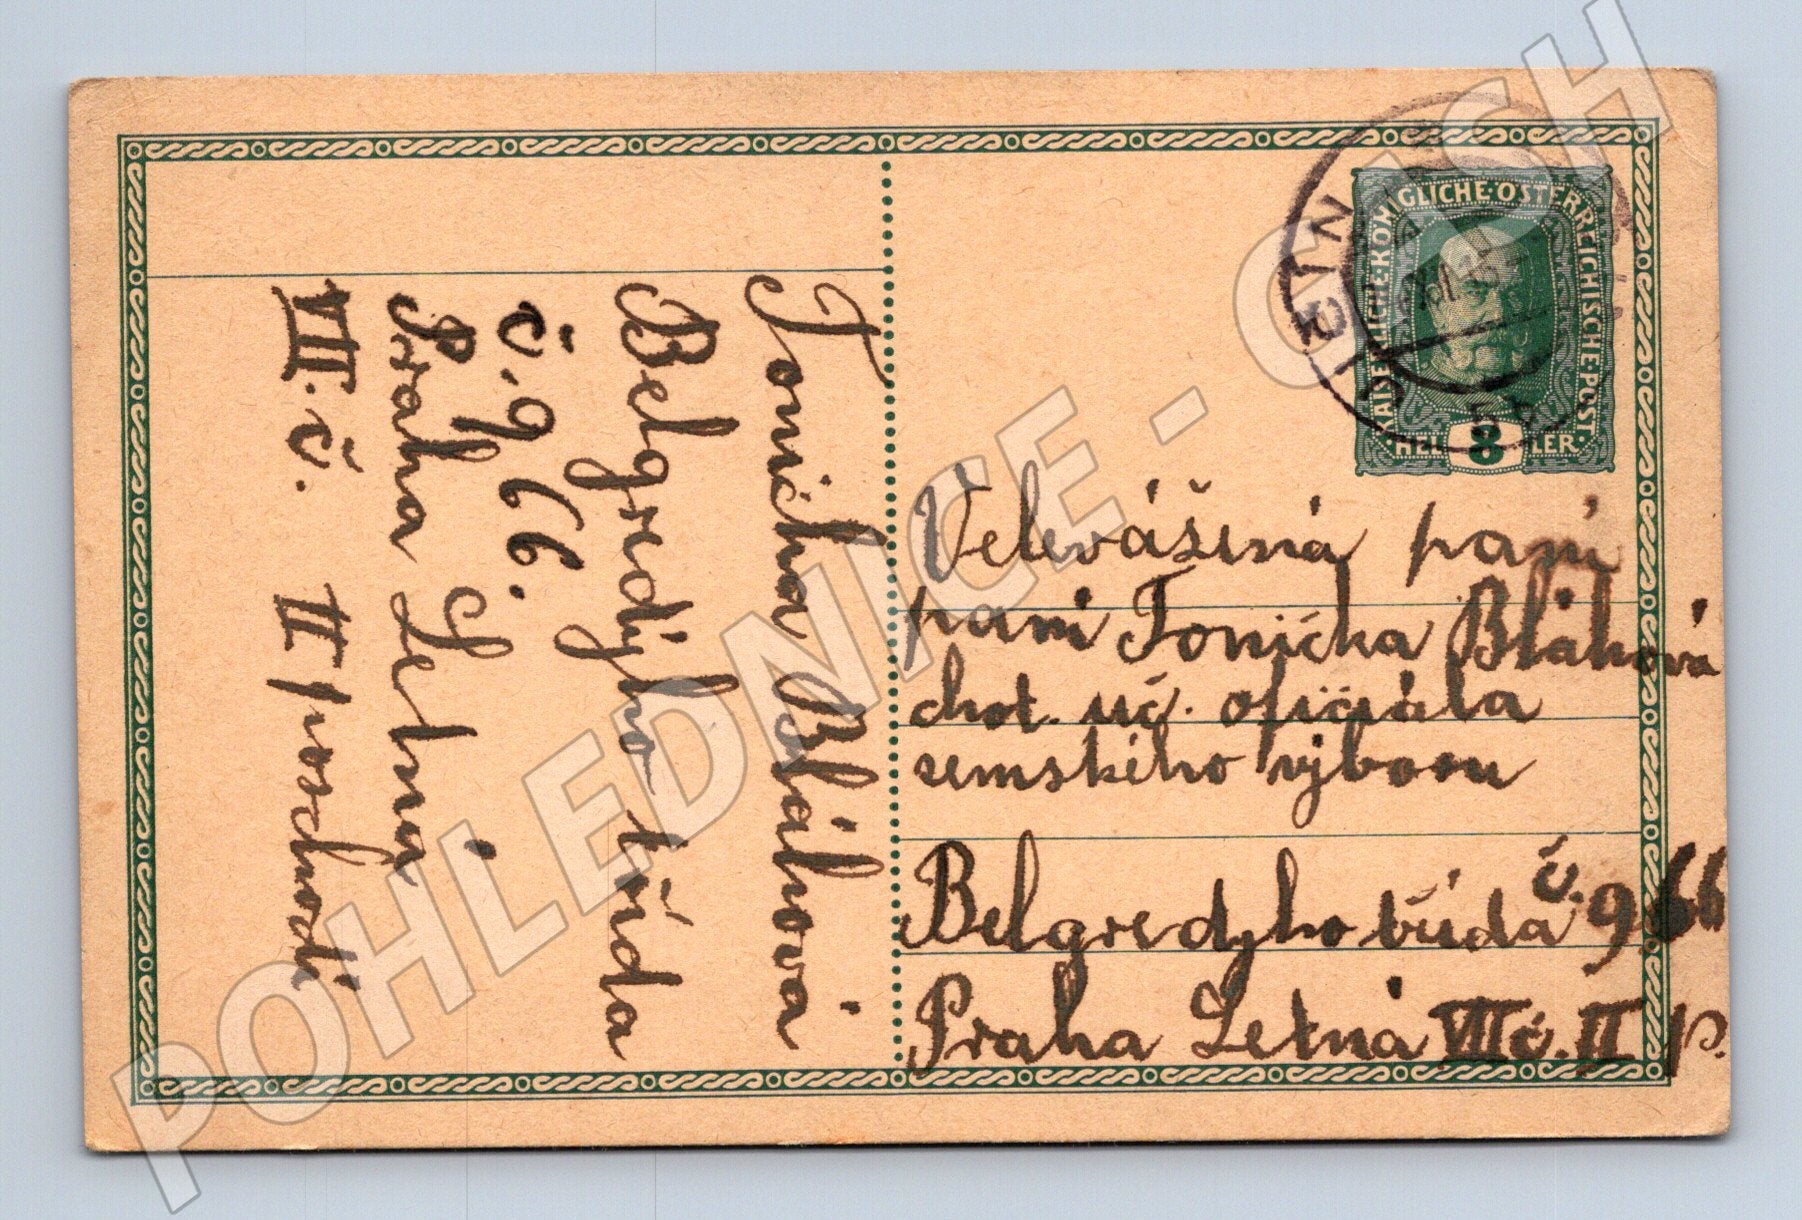 Tonička Bláhová
Belgredýho třída
č. 966.
Praha Letná
VII. č. II poschodí
KAISERLICHE·KÖNIGLICHE·ÖSTERREICHISCHE·POST
HELLER
8
Velevážená paní
paní Tonička Bláhová
chot. uč. oficiála
zemského výboru
Belgredyho třída č. 966
Praha Letná VII č. II p.
POHLEDNICE - CASH